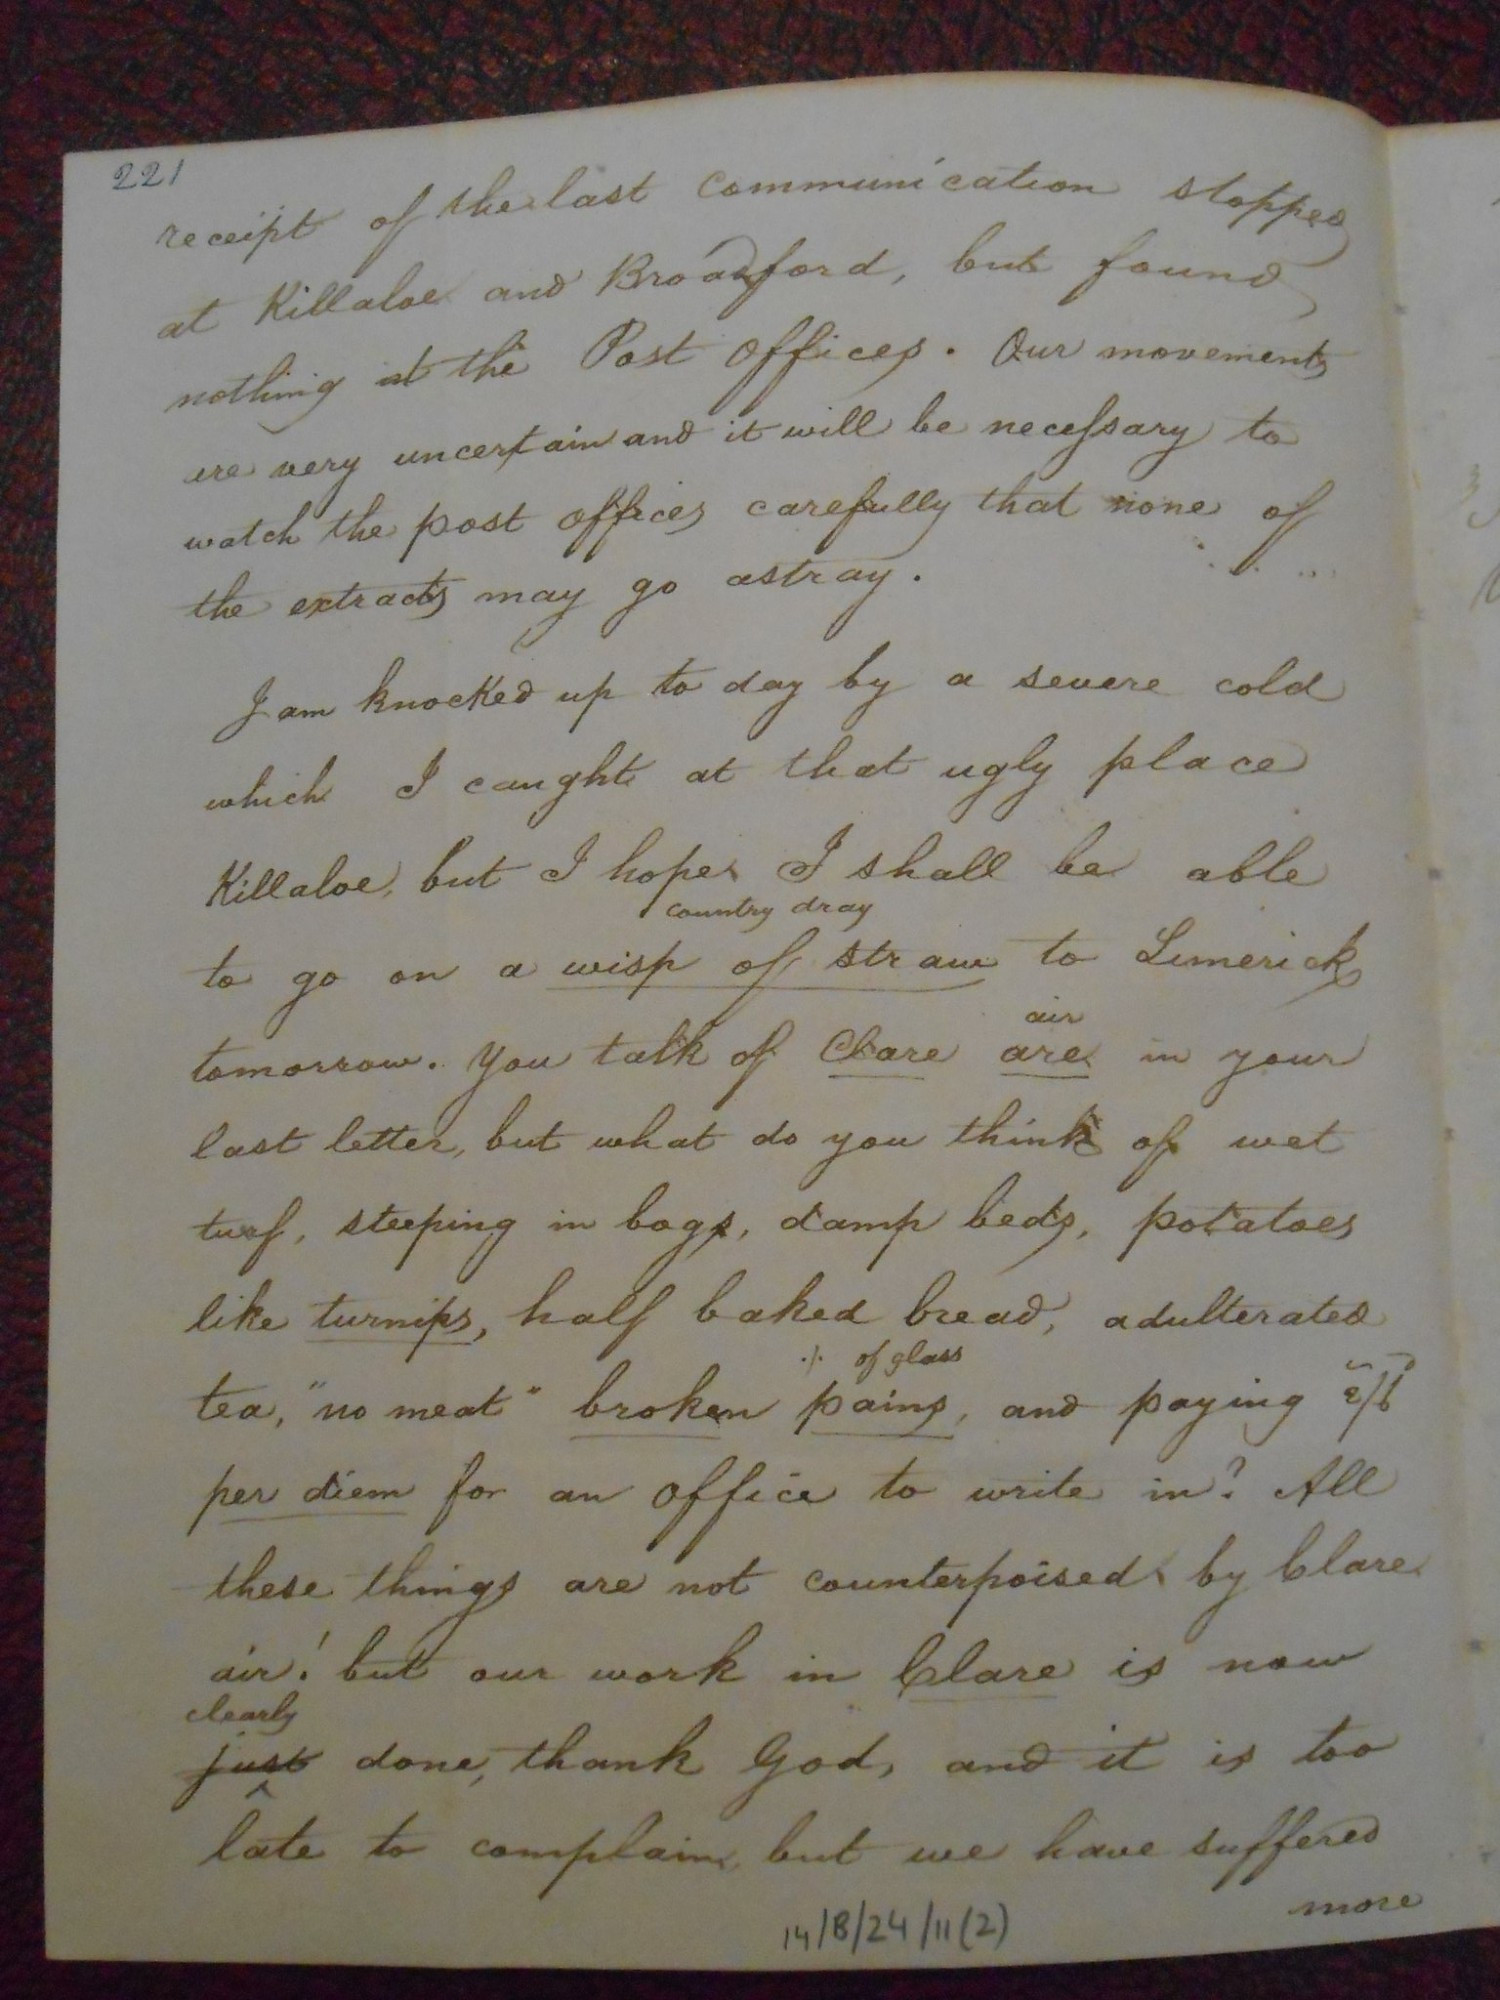 221
receipt of the last communication stopped
at Killaloe and Broadford, but found
nothing at the Post Offices. Our movements
are very uncertain and it will be necessary to
watch the post offices carefully that none of
the extracts may go astray.
I am knocked up to day by a severe cold
which I caught at that ugly place
Killaloe, but I hope I shall be able
country dray
to go on a wisp of straw to Limerick
air
tomorrow. You talk of Clare are in your
last letter, but what do you think of wet
turf, steeping in bogs, damp beds, potatoes
like turnips, half baked bread, adulterated
·/· of glass
tea, "no meat" broken pains, and paying
per diem for an office to write in? All
these things are not counterpoised by Clare
air! but our work in Clare is now
clearly
just done, thank God, and it is too
late to complain, but we have suffered
more
14/B/24/11(2)